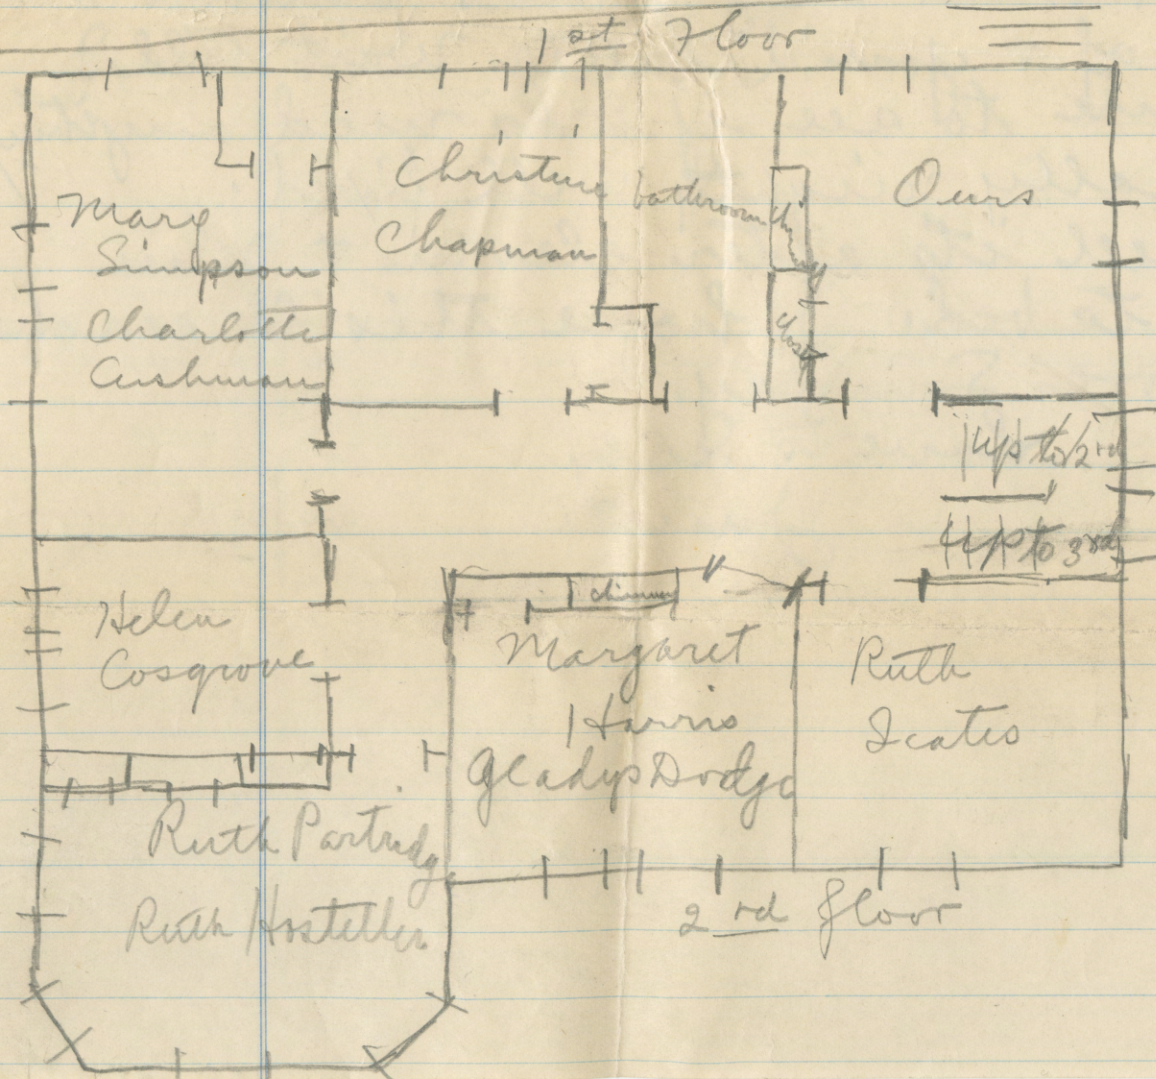 1st Floor
Mary
Simpson
Charlotte
Cushman
Christine
Chapman
bathroom
chimney
closet
Ours
Up to 2rd
Up to 3rd
Helen
Cosgrove
chimney
Margaret
Harris
Gladys Dodge
Ruth
Scates
Ruth Partridg
Ruth Hostetler
2rd floor